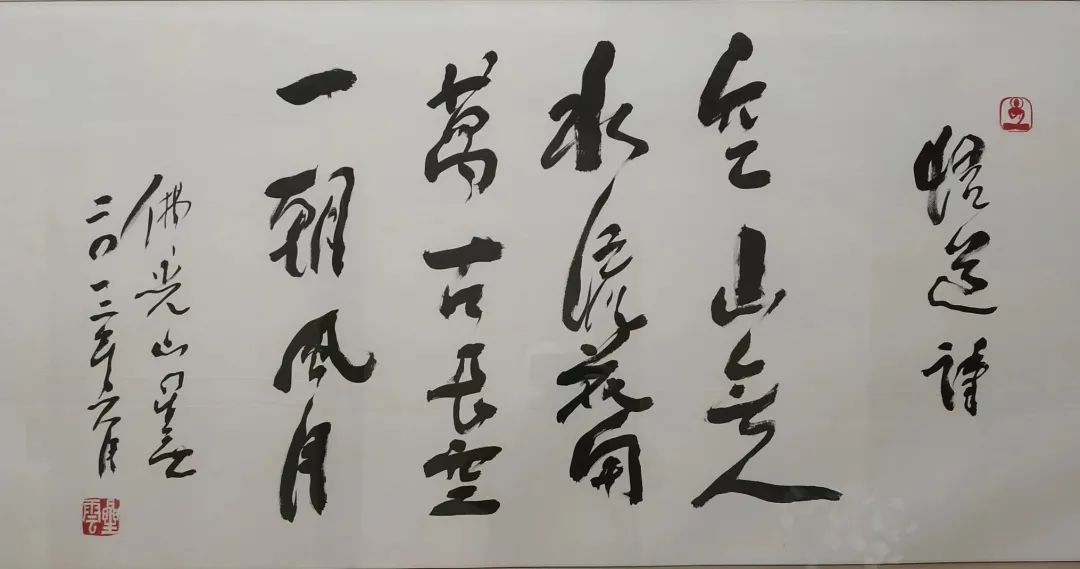 悟道詩
空山無人
水流花開
萬古長空
一朝風月
佛光山星雲
二〇一三年六月
星雲